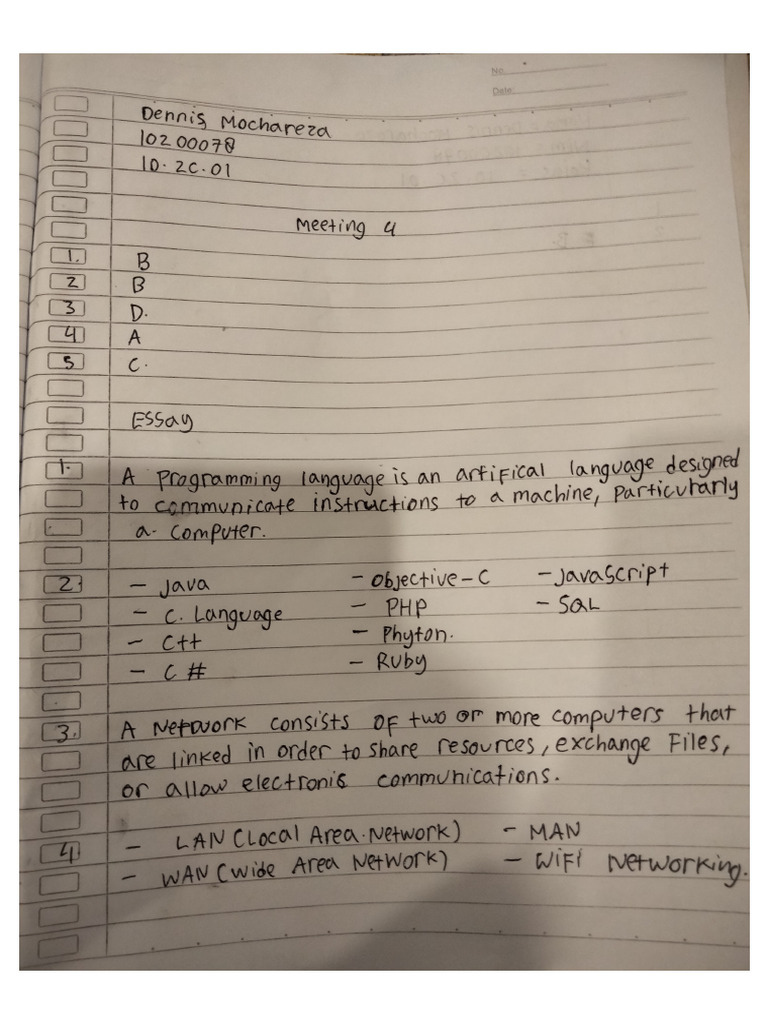 No.
Date:
Dennis Mochareza
10200078
10.2C.01
Meeting 4
1. B
2 B
3 D.
4 A
5 C.
Essay
1. A programming language is an artifical language designed
to communicate instructions to a machine, particularly
a computer.
2. - Java - Objective-C - JavaScript
- C. Language - PHP - SQL
- C++ - Phyton.
- C# - Ruby
3. A Network consists of two or more computers that
are linked in order to share resources, exchange Files,
or allow electronic communications.
4 - LAN (Local Area Network) - MAN
- WAN (Wide Area Network) - WiFi Networking.